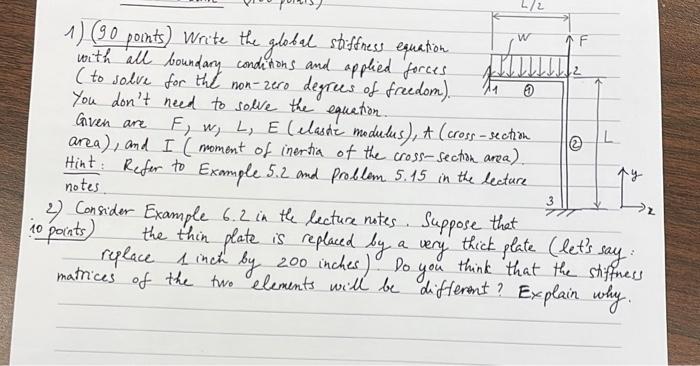 L/2
1) (90 points) Write the global stiffness equation
with all boundary conditions and applied forces
(to solve for the non-zero degrees of freedom).
You don't need to solve the equation.
Given are F, w, L, E (elastic modulus), A (cross-section
area), and I (moment of inertia of the cross-section area).
Hint: Refer to Example 5.2 and Problem 5.15 in the lecture
notes
w
F
2
1
1
2
L
3
y
x
2) Consider Example 6.2 in the lecture notes. Suppose that
10 points) the thin plate is replaced by a very thick plate (let's say:
replace 1 inch by 200 inches). Do you think that the stiffness
matrices of the two elements will be different? Explain why.